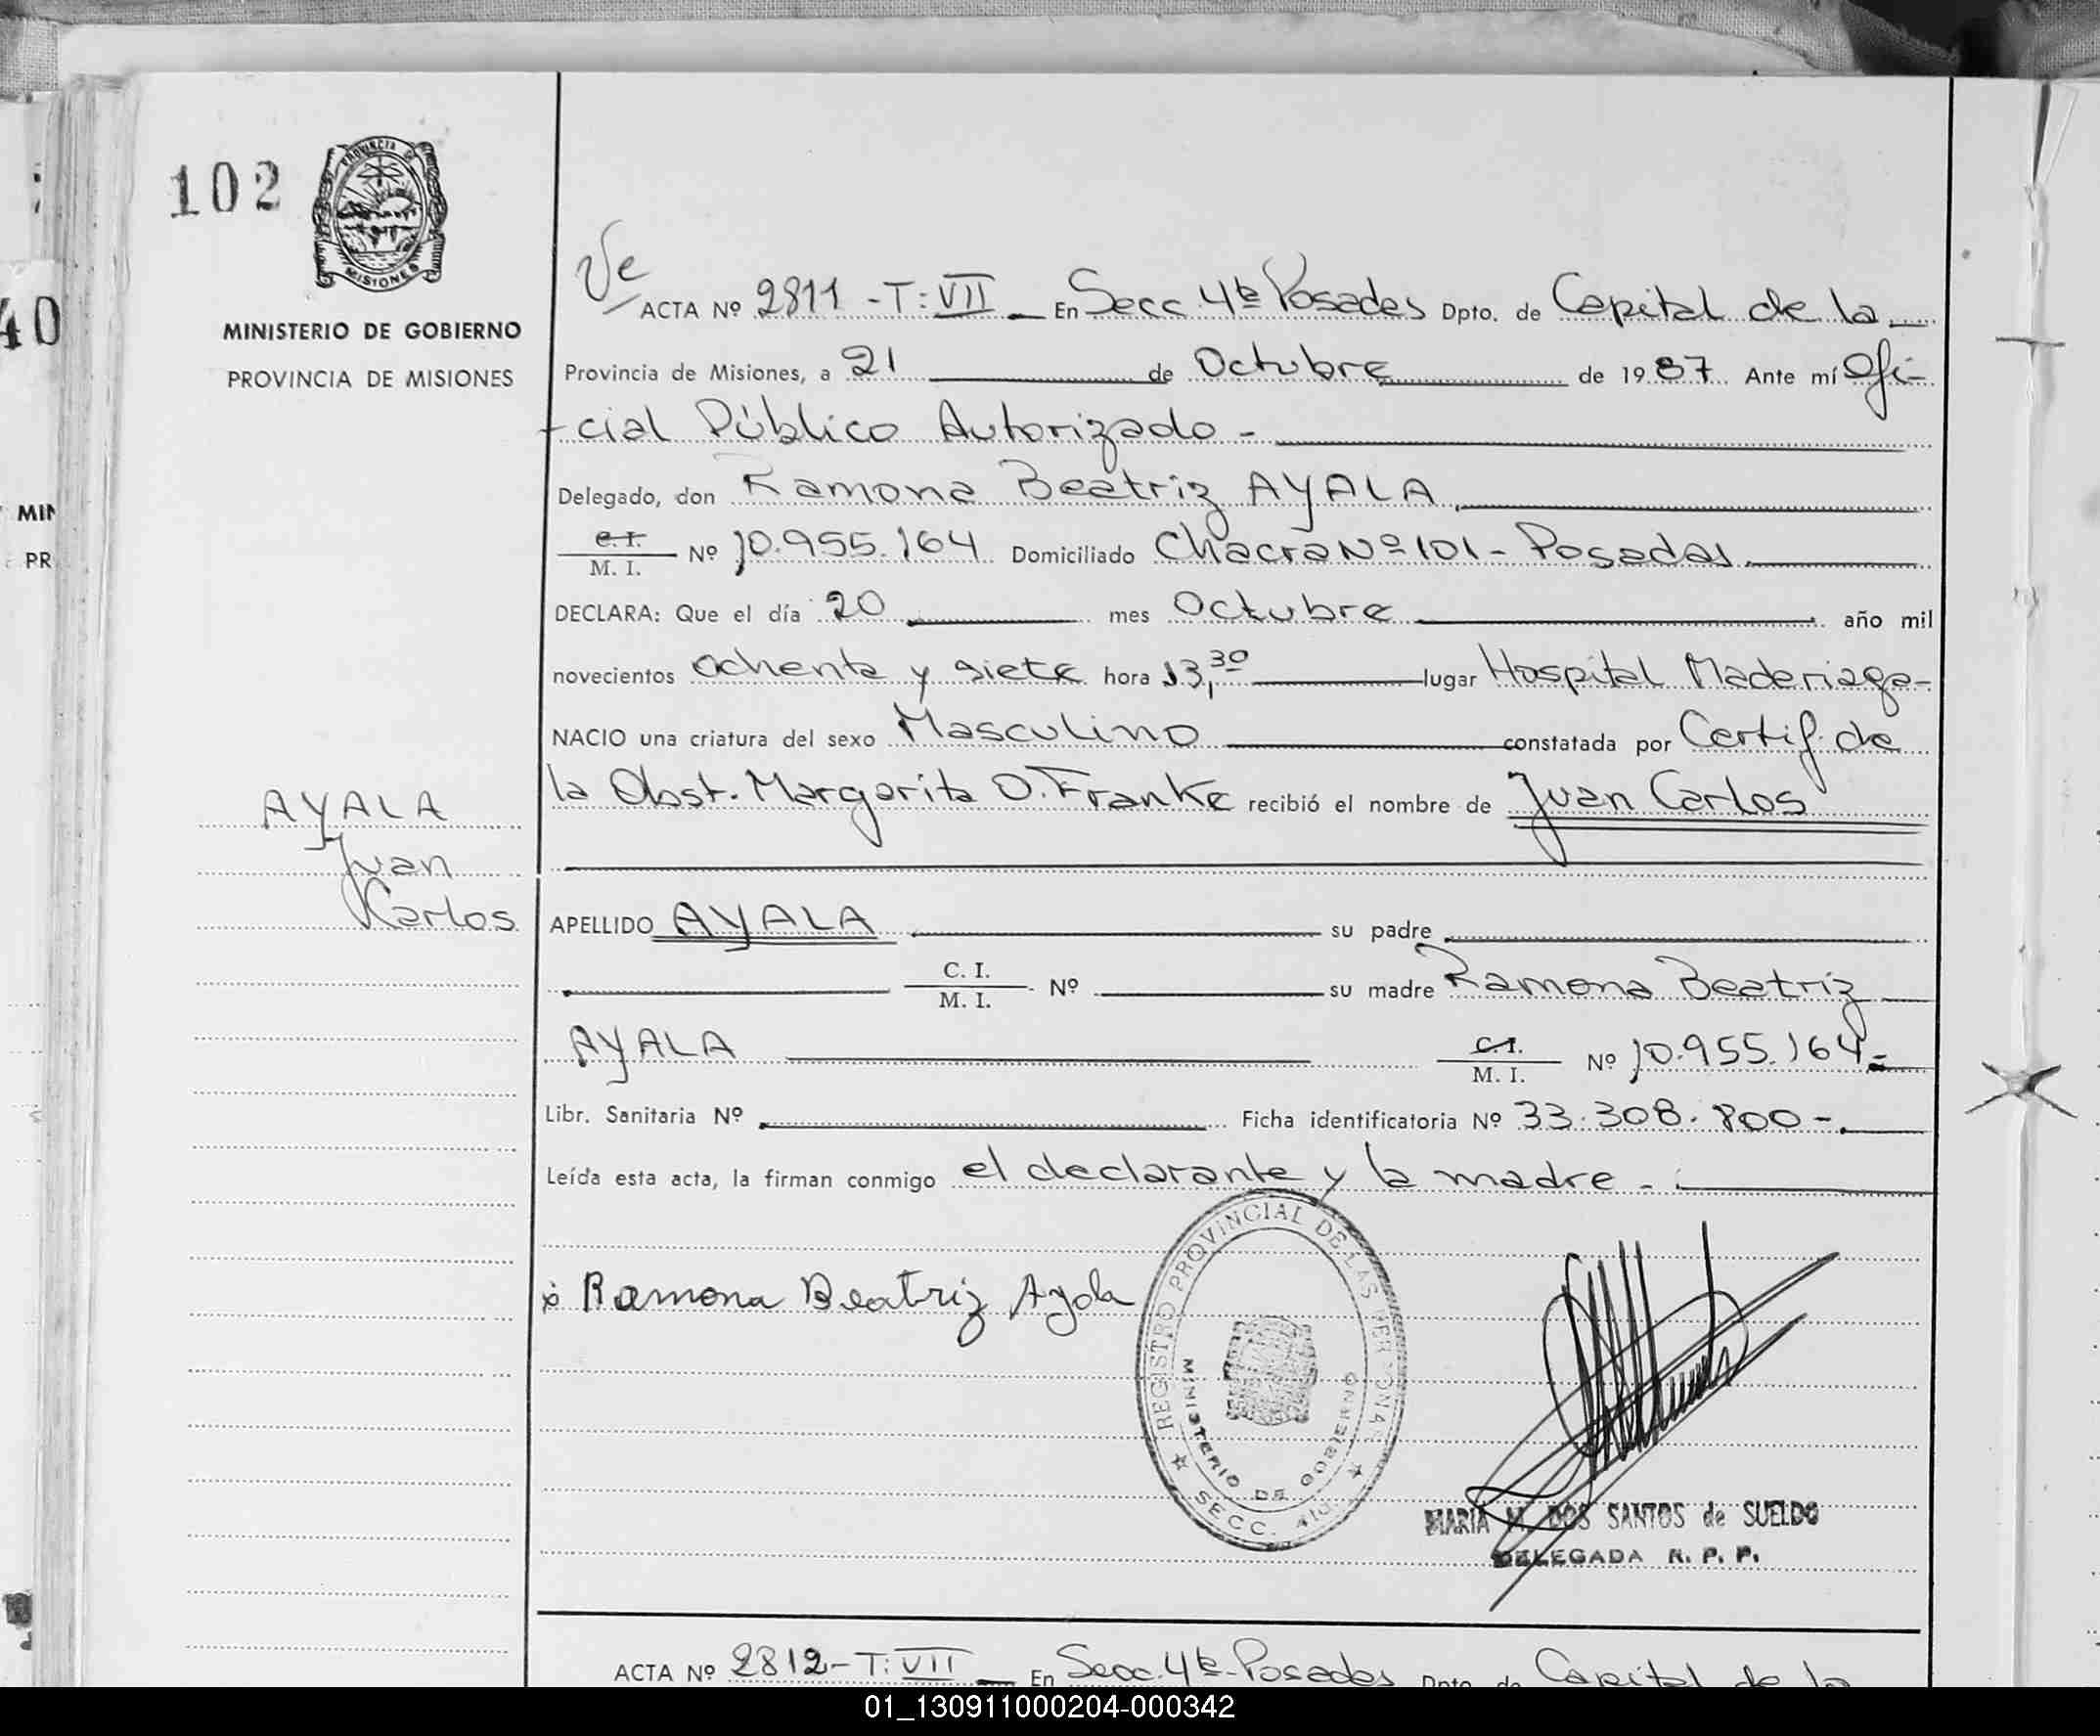 102
PROVINCIA DE
MISIONES
MINISTERIO DE GOBIERNO
PROVINCIA DE MISIONES
40
MIN
PR
Ve
ACTA Nº 2811 - T: VII — En Secc 4ta Posadas Dpto. de Capital de la
Provincia de Misiones, a 21 de Octubre de 1987 Ante mí Ofi-
-cial Público Autorizado -
Delegado, don Ramona Beatriz AYALA
C. I. / M. I. Nº 10.955.164 Domiciliado Chacra Nº 101 - Posadas
DECLARA: Que el día 20 mes Octubre año mil
novecientos ochenta y siete hora 13,30 lugar Hospital Madariaga-
NACIO una criatura del sexo Masculino constatada por Certif. de
la Obst. Margarita O. Franke recibió el nombre de Juan Carlos
AYALA
Juan
Carlos
APELLIDO AYALA su padre
C. I. / M. I. Nº su madre Ramona Beatriz
AYALA C. I. / M. I. Nº 10.955.164-
Libr. Sanitaria Nº Ficha identificatoria Nº 33.308.800-
Leída esta acta, la firman conmigo el declarante y la madre -
x Ramona Beatriz Ayala
REGISTRO PROVINCIAL DE LAS PERSONAS
MINISTERIO DE GOBIERNO
SECC. 4ta
MARIA M. DOS SANTOS de SUELDO
DELEGADA R. P. P.
ACTA Nº 2812 - T: VII — En Secc. 4ta - Posadas Dpto. de Capital de la
01_130911000204-000342